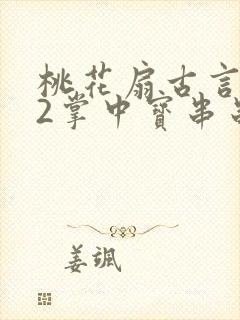 桃花扇古言
2掌中寶串
姜颯